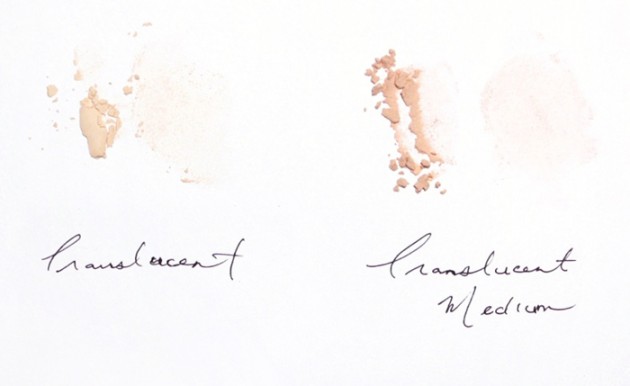 Translucent
Translucent
Medium